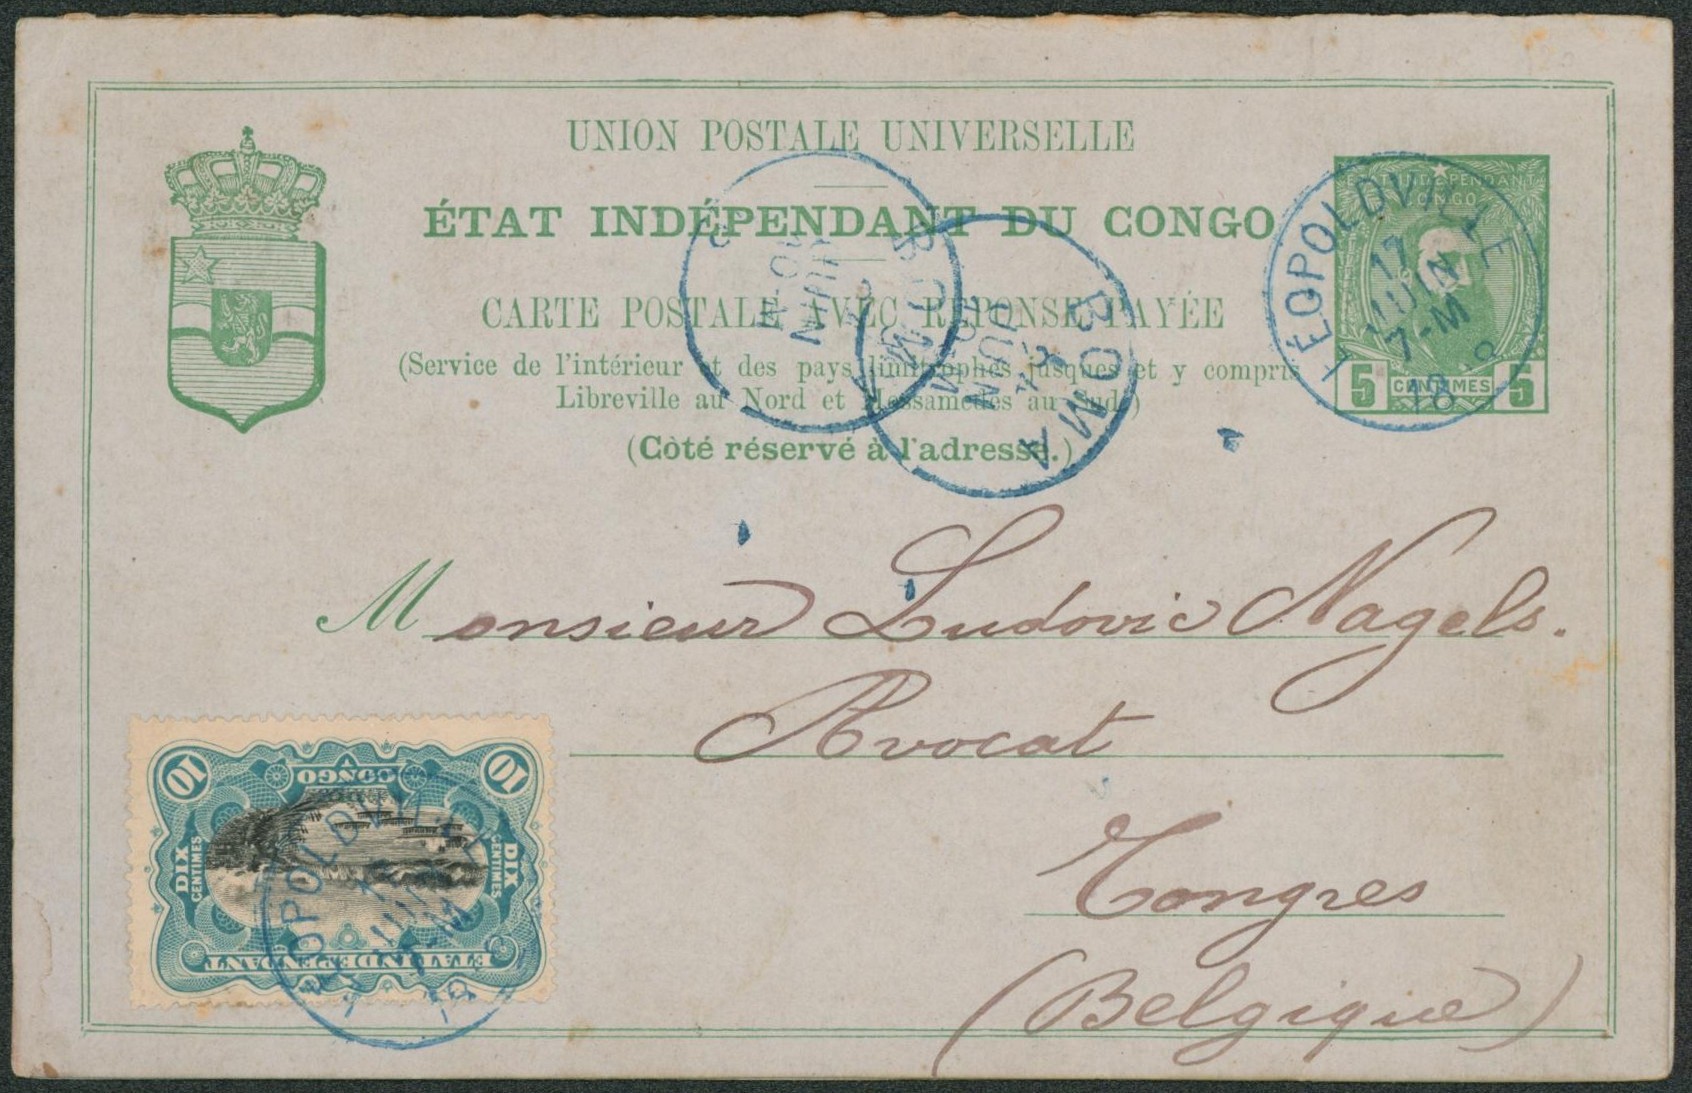 UNION POSTALE UNIVERSELLE
ÉTAT INDÉPENDANT DU CONGO
CARTE POSTALE AVEC RÉPONSE PAYÉE
(Service de l'intérieur et des pays limitrophes jusques et y compris
Libreville au Nord et Mossamedes au Sud.)
(Côté réservé à l'adresse.)
ETAT INDÉPENDANT
CONGO
5 CENTIMES 5
LÉOPOLDVILLE
17
JUIN
7-M
BOMA
JUIN
BOMA
JUIN
Monsieur Ludovic Nagels.
Avocat
Tongres
(Belgique)
ETAT INDÉPENDANT
DIX CENTIMES
DIX CENTIMES
DU CONGO
10
10
LÉOPOLDVILLE
JUIN
7-M